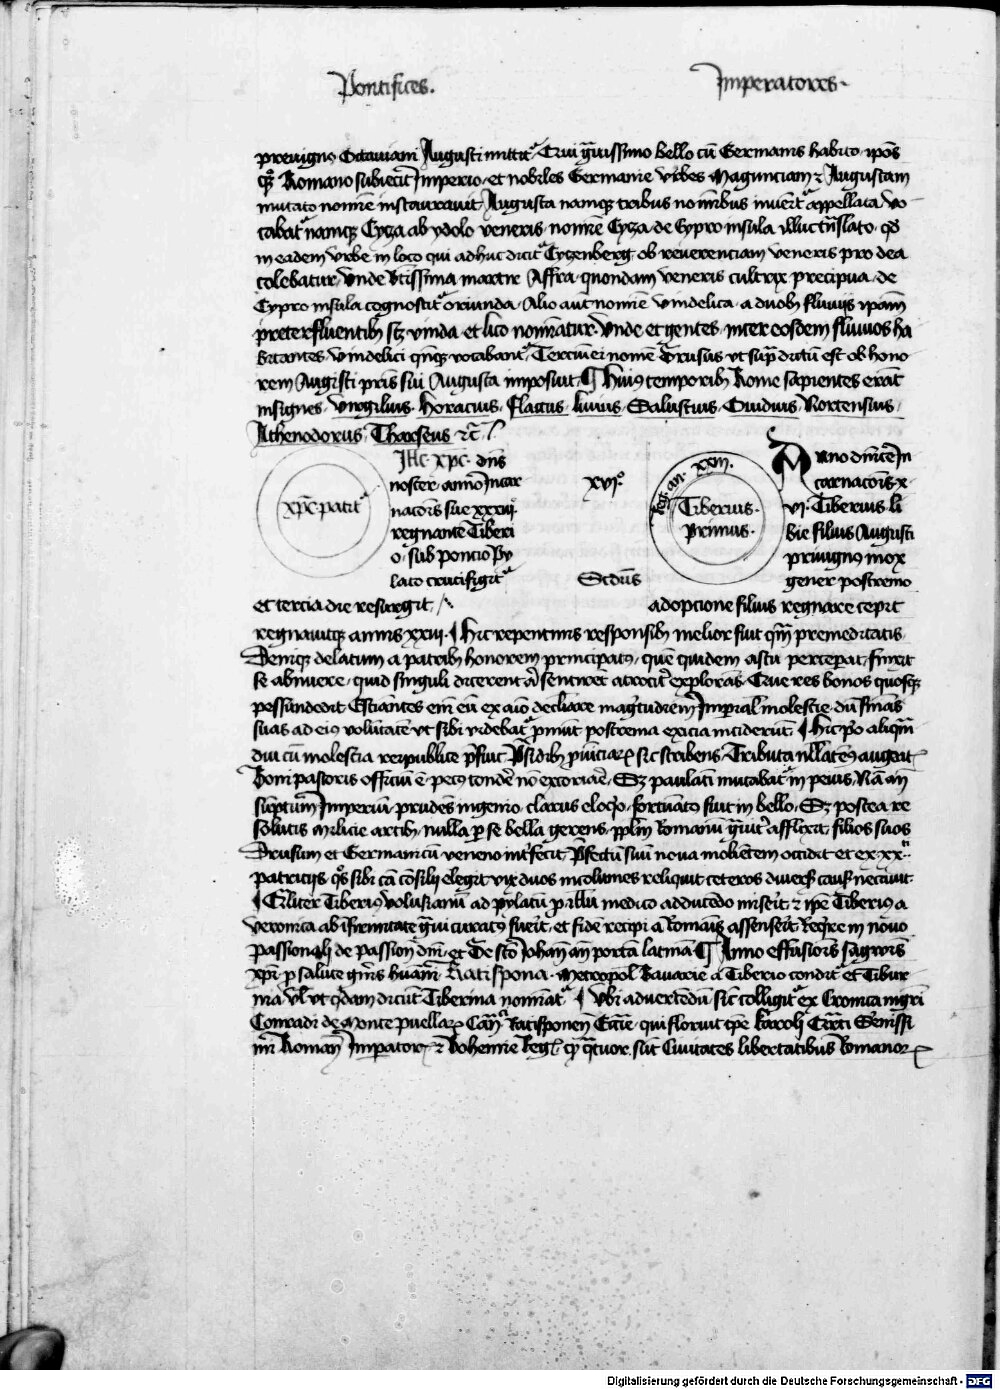 Pontifices.
Imperatores.
preuignꝰ Octauiani Augusti mittitᷣ. Cui g̃uissimo bello cū Germanis habito. ip̃os
qꝫ Romano subiecit Imperio. et nobiles Germanie vrbes Magunciam ⁊ Augustam
mutato nomīe instaurauit. Augusta namqꝫ tribus nominibus inuenitᷣ appellata. Vo-
cabatᷣ namqꝫ Cyza ab ydolo veneris. nomīe Cyza. de Cypro insula illuc tn̄slato. qd̄
in eadem vrbe in loco qui adhuc dicitᷣ Cyzenberg. ob reuerenciam veneris pro dea
colebatur. Vnde b̃tissima martir Affra. quondam veneris cultrix precipua. de
Cypro insula cognoscitᷣ oriunda. Alio aut nomīe Vindelica. a duobꝫ fluuijs ip̄am
preterfluentibꝫ scꝫ vinda. et lico nominatur. Vnde et gentes. inter eosdem fluuios ha
bitantes. Vindelici qn̄qꝫ vocabantᷣ. Terciū ei nomē Drusus vt sup̃ dictū est ob hono
rem Augusti pr̃is sui Augusta imposuit. ¶ Huiꝰ temporibꝫ Rome sapientes erāt
insignes. Virgilius. Horacius. Flaccus. Liuius. Salustius. Ouidius. Hortensius.
Athenodorus. Tharseus ⁊c̃.
xp̃c patitᷣ
Ihc. xp̃c. dn̄s
noster. anno Incar
nacōis sue xxxiij.
regnante Tiberi
o. sub poncio Py
lato crucifigitᷣ
et tercia die resurgit.
xvjꝰ.
reg. an. xxiij.
Tiberius.
primus.
Scd̄us
Anno dnīce In
carnacōis x-
vj. Tiberius. li
bie filius Augusti
priuignꝰ mox
gener postremo
adopcione filius regnare cepit
regnauitqꝫ annis xxiij. ¶ Hic repentinis responsibꝫ melior fiut qm̄ premeditatis.
Deniqꝫ delatum a patribꝫ honorem principatꝰ. quē quidem astu perceperat. finxit
se abnuere. quid singuli dicerent aut sentirent atrocitᷣ explorās. Que res bonos quosqꝫ
pessundedit. Estiantes em̄ eū ex aīo declīare magᷣtudinem Imperial molestie. dū sentēias
suas ad eiꝰ volūtatē vt sibi videbatᷣ p̄mūt postrema exicia inciderūt. ¶ Hic pͦ aliqm̄
diu cū molestia reipublice p̄fuit. P̄sidibꝫ p̄uinciaꝝ sic scribens. Tributa nllaten̄ augeri.
Boni pastoris officiū ē pecꝰ tondē nō excoriaē. Sꝫ paulati mutabatᷣ in peius. Nā an̄
sūptum Imperiū. prudēs ingenio. clarus eloqͦ. fortūato fuit in bello. Sꝫ postea re
solutis milicie artibꝫ. nulla ꝑ se bella gerens. ppl̄m Romanū g̃uit̃ afflixit. filios suos
Drusum et Germanicū veneno int̃fecit. P̄fectū suū noua molientem occidit et ex xxᵗⁱ
patricijs qͦs sibi cā cōsilij elegit vix duos incolumes reliquit. ceteros diuersꝭ causꝭ necauit.
¶ Eiliter Tiberiꝰ volusianū ad pylatū ꝓ ih̄u medico adducēdo miserit. ⁊ ip̄e Tiberiꝰ a
veronica ab infirmitate g̃ui curatꝰ fuerit. et fidē recipi a Romanis assenserit. Reqͥre in nouo
passionali de passion̄ dnī. et De sct̄o Johan̄e an̄ portā latinā. ¶ Anno effusiōis sāgwīs
xp̄i ꝓ salute gn̄is hūani. Ratispona. Metropol̄ Bauarie a Tiberio condit̃. Et Tibur
nia vl̄ vt qͥdam dicūt Tiberina noīatᷣ. ¶ Vbi aduertēdū sic colligitᷣ ex Cronica mgr̄i
Conradi de Monte puellaꝝ Can̄ici Ratisponen̄ Ecc̄ie. qui floruit tp̄e karoli Quarti Serenissi
mi Romanoꝝ Imperatorꝭ. ⁊ Bohemie Regꝭ. qꝫ q̄tuor. sūt Ciuitates libertatibꝰ Romanoꝝ
Digitalisierung gefördert durch die Deutsche Forschungsgemeinschaft - DFG